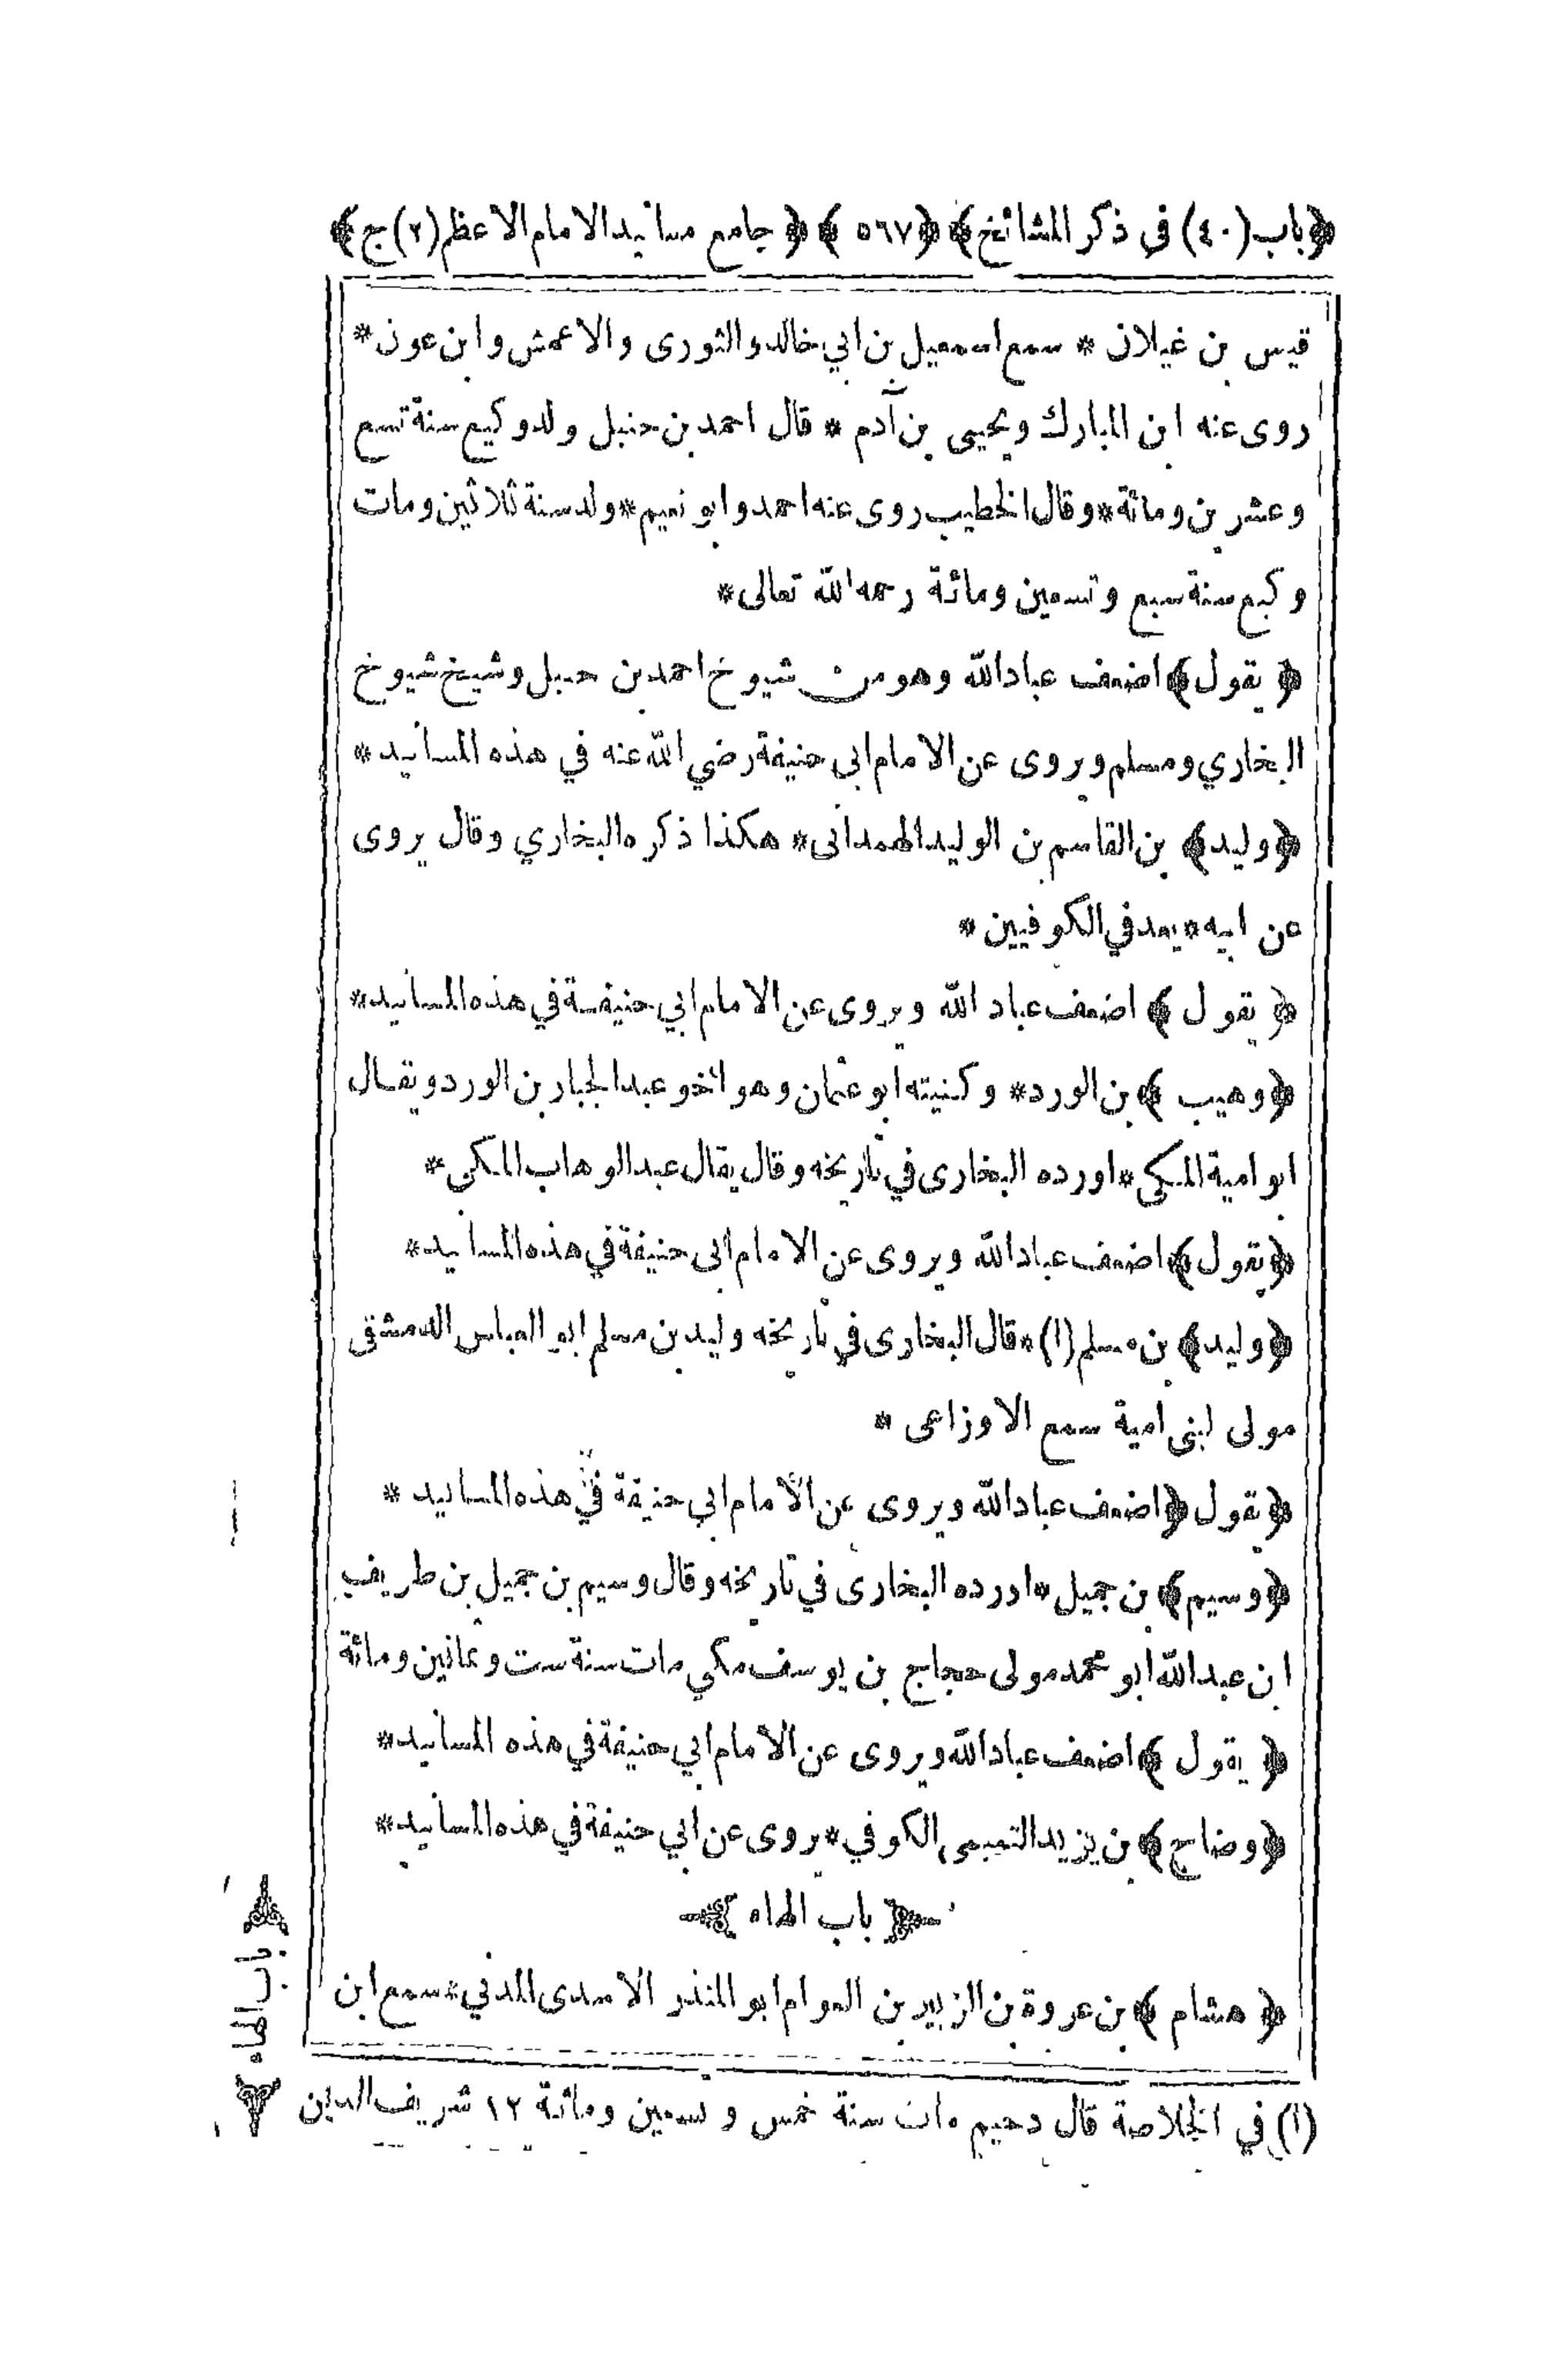 ﴿باب (٤٠) في ذكر المشائخ﴾ ﴿٥٦٧﴾ ﴿جامع مسانيد الامام الاعظم (٢) ج﴾
قيس بن غيلان * سمع اسمعيل بن ابي خالد والثورى والاعمش وابن عون *
روى عنه ابن المبارك ويحيى بن آدم * قال احمد بن حنبل ولد وكيع سنة تسع
وعشرين ومائة * وقال الخطيب روى عنه احمد وابو نعيم * ولد سنة ثلاثين ومات
وكيع سنة سبع وتسعين ومائة رحمه الله تعالى *
﴿يقول﴾ اضعف عباد الله وهو من شيوخ احمد بن حنبل وشيخ شيوخ
البخاري ومسلم ويروى عن الامام ابى حنيفة رضي الله عنه في هذه المسانيد *
﴿وليد﴾ بن القاسم بن الوليد الهمدانى * هكذا ذكره البخاري وقال يروى
عن ابيه * يعد في الكوفيين *
﴿يقول﴾ اضعف عباد الله ويروى عن الامام ابي حنيفة في هذه المسانيد *
﴿وهيب﴾ بن الورد * وكنيته ابو عثمان وهو اخو عبد الجبار بن الورد ويقال
ابو امية المكى * اورده البخارى في تاريخه وقال يقال عبد الوهاب المكى *
﴿يقول﴾ اضعف عباد الله ويروى عن الامام ابى حنيفة في هذه المسانيد *
﴿وليد﴾ بن مسلم (١) * قال البخارى في تاريخه وليد بن مسلم ابو العباس الدمشقى
مولى لبنى امية سمع الاوزاعى *
﴿يقول﴿ اضعف عباد الله ويروى عن الامام ابي حنيفة في هذه المسانيد *
﴿وسيم﴾ بن جميل * اورده البخارى في تاريخه وقال وسيم بن جميل بن طريف
ابن عبد الله ابو محمد مولى حجاج بن يوسف مكي مات سنة ست وثمانين ومائة
﴿يقول﴾ اضعف عباد الله ويروى عن الامام ابي حنيفة في هذه المسانيد *
﴿وضاح﴾ بن يزيد التميمى الكوفي * يروى عن ابي حنيفة في هذه المسانيد *
باب الهاء
﴿هشام﴾ بن عروة بن الزبير بن العوام ابو المنذر الاسدى المدني * سمع ابن
باب الهاء
(١) في الخلاصة قال دحيم مات سنة خمس وتسعين ومائة ١٢ شريف الدين